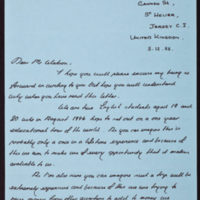 Cannon St,
St Helier,
Jersey C.I.
United Kingdom
2.12.93.
Dear Mr
I hope you will excuse my being
forward in writing to you but I hope you will understand
why when you have read this letter.
We are two English students aged 19 and
20 who in August 1994 hope to set out on a one year
educational tour of the world. As you can imagine this is
probably only a once in a lifetime experience and because of this
we aim to make use of every opportunity that is made
available to us.
As I'm also sure you can imagine such a trip will be
extremely expensive and because of this we are trying to